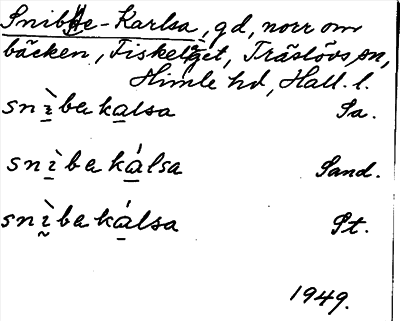 Snibbe-Karlsa, gd, norr om
bäcken, Fiskeläget, Träslövs sn,
Himle hd, Hall. l.
snì̱beka̱lsa Sa.
sni̱beká̱lsa Sand.
snḭ̀beká̱lsa St.
1949.